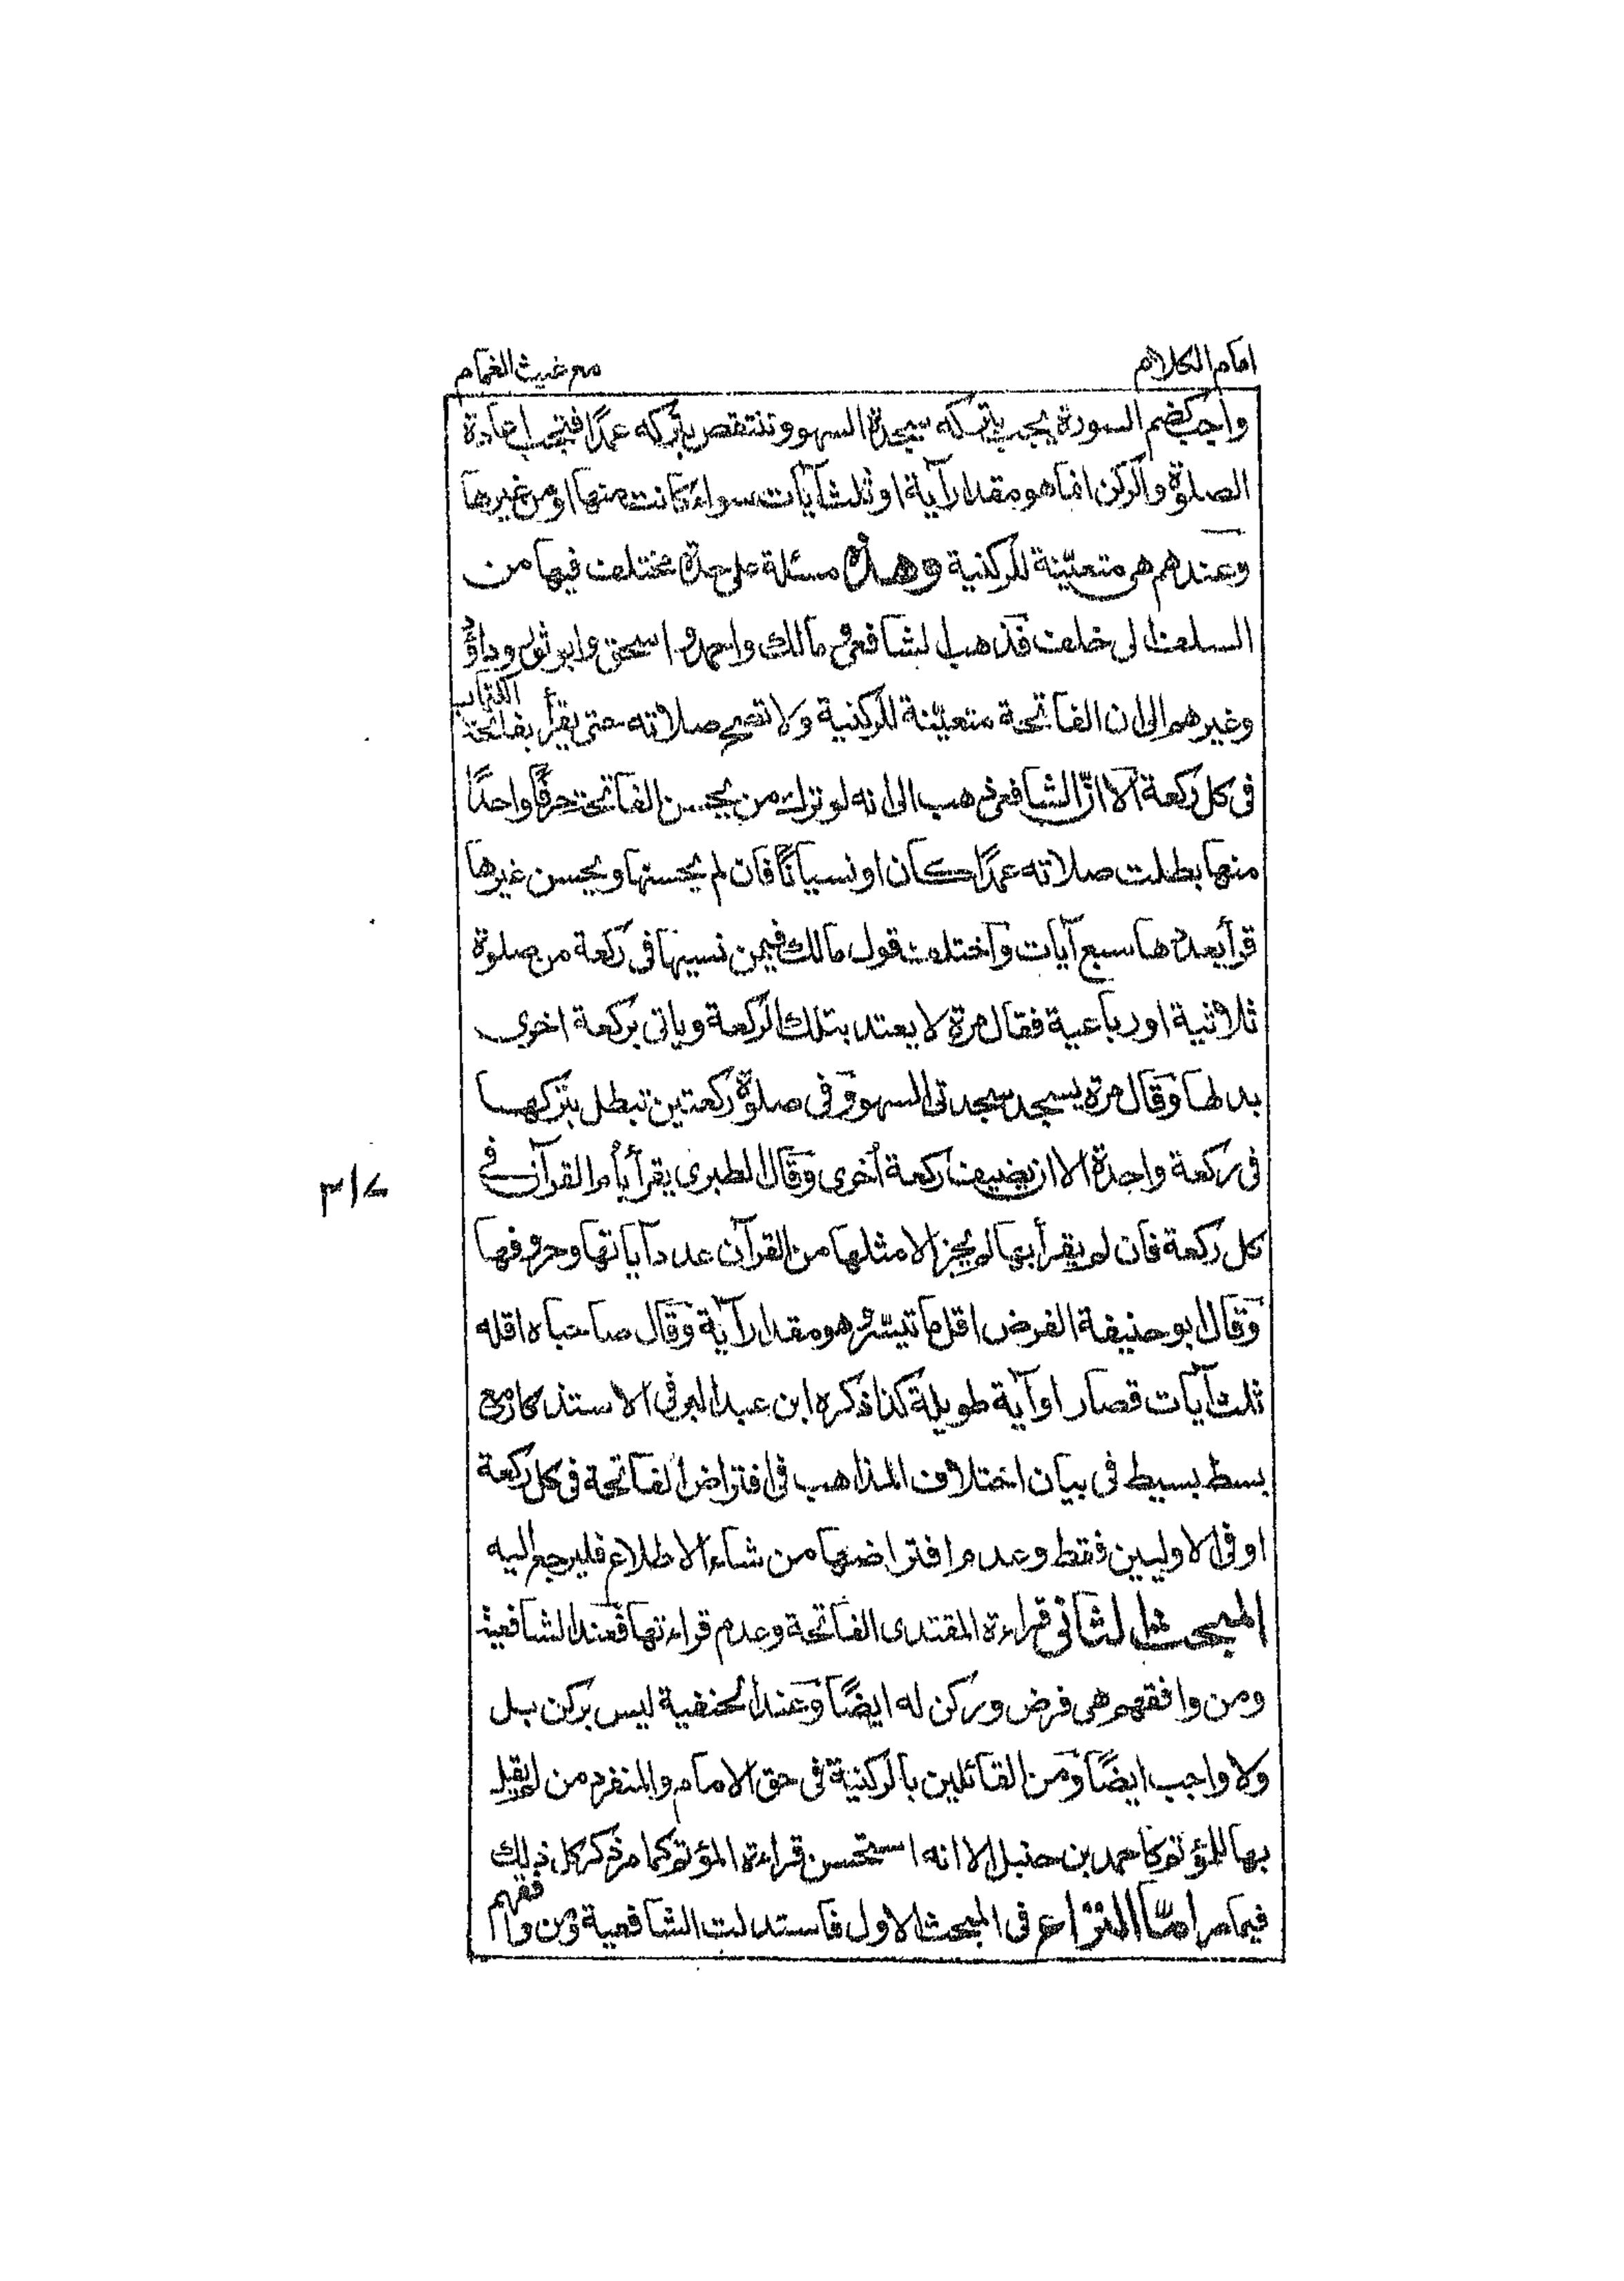 امام الكلام
مع غيث الغمام
واجب كضم السورة يجب بتركه سجدة السهو وتنتقص بتركه عمدًا فتجب اعادة
الصلوة والركن انما هو مقدار آية او ثلث آيات سواء كانت منها او من غيرها
وعندهم هى متعيّنة للركنية وهذه مسئلة على حدة مختلف فيها من
السلف الى خلف فذهب الشافعى ومالك واحمد واسحق وابو ثور وداؤد
وغيرهم الى ان الفاتحة متعيّنة للركنية ولا تصح صلاته حتى يقرأ بفاتحة الكتاب
فى كل ركعة الا انّ الشافعى ذهب الى انه لو ترك من يحسن الفاتحة حرفًا واحدًا
منها بطلت صلاته عمدًا كان او نسيانًا فان لم يحسنها ويحسن غيرها
قرأ بعددها سبع آيات واختلف قول مالك فيمن نسيها فى ركعة من صلوة
ثلاثية او رباعية فقال مرة لا يعتد بتلك الركعة وياتى بركعة اخرى
بدلها وقال مرة يسجد سجدتى السهو وفى صلوة ركعتين تبطل بتركها
فى ركعة واحدة الا ان يضيف ركعة أخرى وقال الطبرى يقرأ بأم القرآن فى
كل ركعة فان لم يقرأ بها لم يجز الا مثلها من القرآن عدد آياتها وحروفها
وقال ابو حنيفة الفرض اقل ما تيسّر وهو مقدار آية وقال صاحباه اقله
ثلث آيات قصار او آية طويلة كذا ذكره ابن عبد البر فى الاستذكار مع
بسط بسيط فى بيان اختلاف المذاهب فى افتراض الفاتحة فى كل ركعة
او فى الاوليين فقط وعدم افتراضها من شاء الاطلاع فليرجع اليه
المبحث الثانى قراءة المقتدى الفاتحة وعدم قراءتها فعند الشافعية
ومن وافقهم هى فرض وركن له ايضًا وعند الحنفية ليس بركن بل
ولا واجب ايضًا ومن القائلين بالركنية فى حق الامام والمنفرد من لم يقل
بها للمؤتم كاحمد بن حنبل الا انه استحسن قراءة المؤتم كما مر ذكر كل ذلك
فيما مر امّا النزاع فى المبحث الاول فاستدلت الشافعية ومن وافقهم